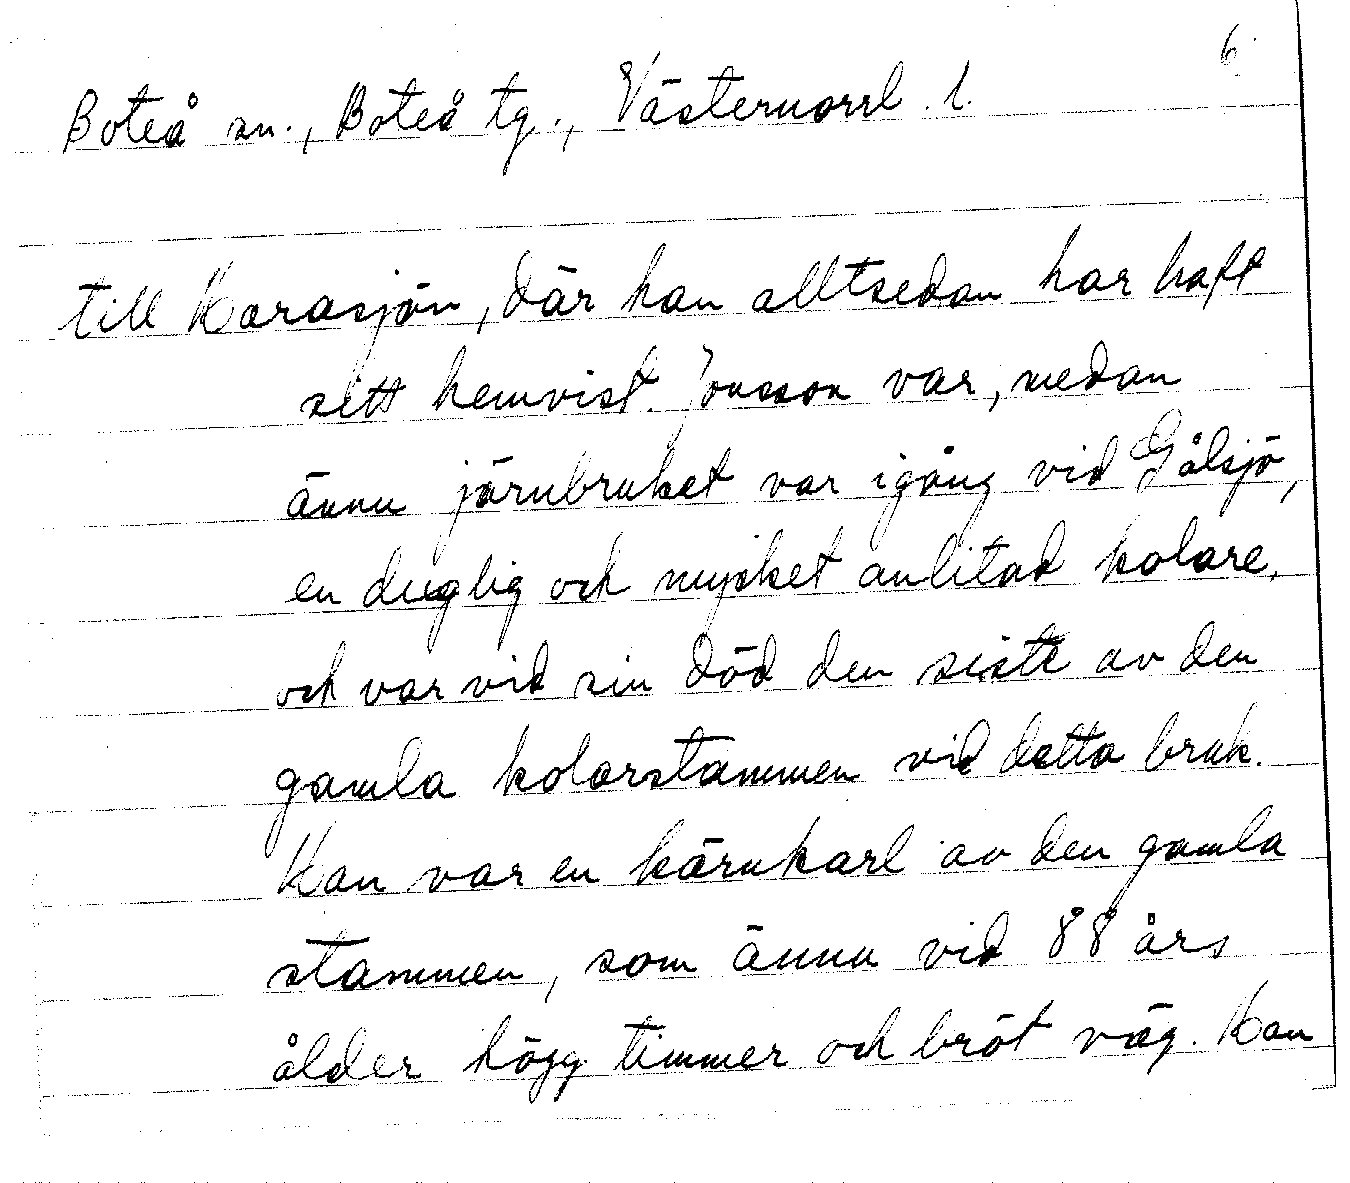 6.
Boteå sn., Boteå tg., Västernorrl. l.
till Harasjön, där han alltsedan har haft
sitt hemvist. Jonsson var, medan
ännu järnbruket var igång vid Gålsjö,
en duglig och mycket anlitad kolare,
och var vid sin död den siste av den
gamla kolarstammen vid detta bruk.
Han var en kärnkarl av den gamla
stammen, som ännu vid 88 års
ålder högg timmer och bröt väg. Han